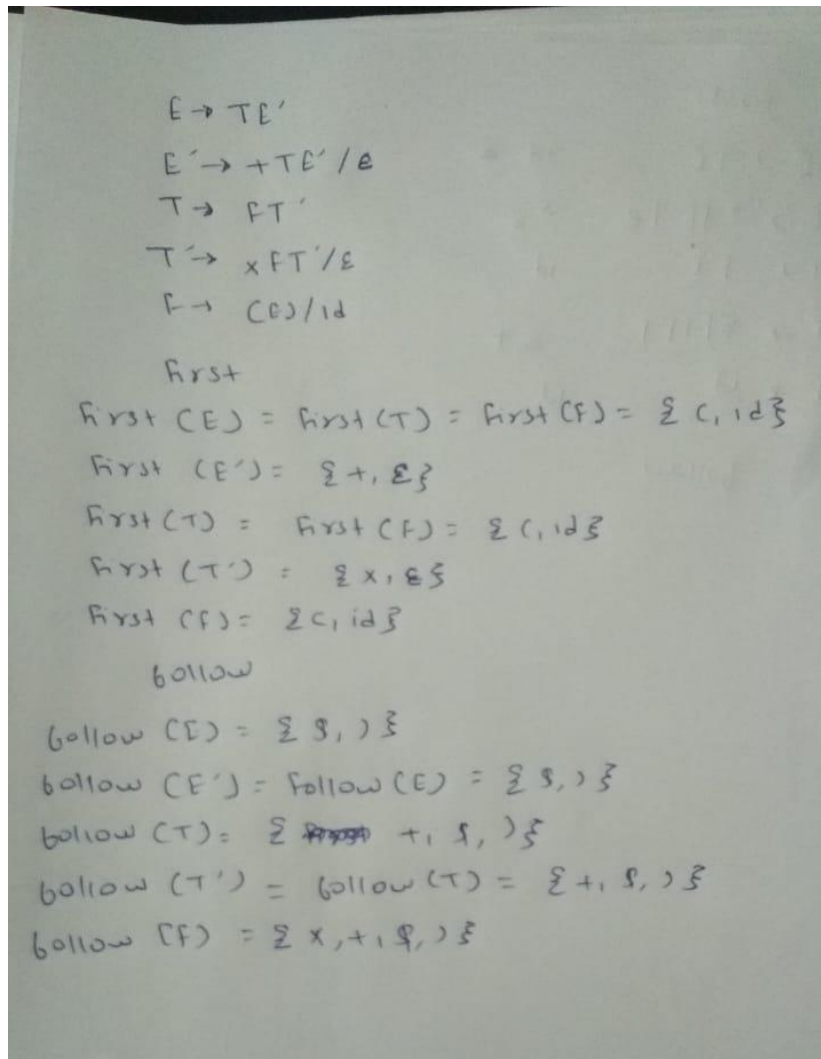 E → TE'
E' → +TE'/ε
T → FT'
T' → xFT'/ε
F → (E)/id
First
First (E) = First (T) = First (F) = {(, id}
First (E') = {+, ε}
First (T) = First (F) = {(, id}
First (T') = {x, ε}
First (F) = {(, id}
Follow
Follow (E) = {$, )}
Follow (E') = Follow (E) = {$, )}
Follow (T) = { +, $, )}
Follow (T') = Follow (T) = {+, $, )}
Follow (F) = {x, +, $, )}